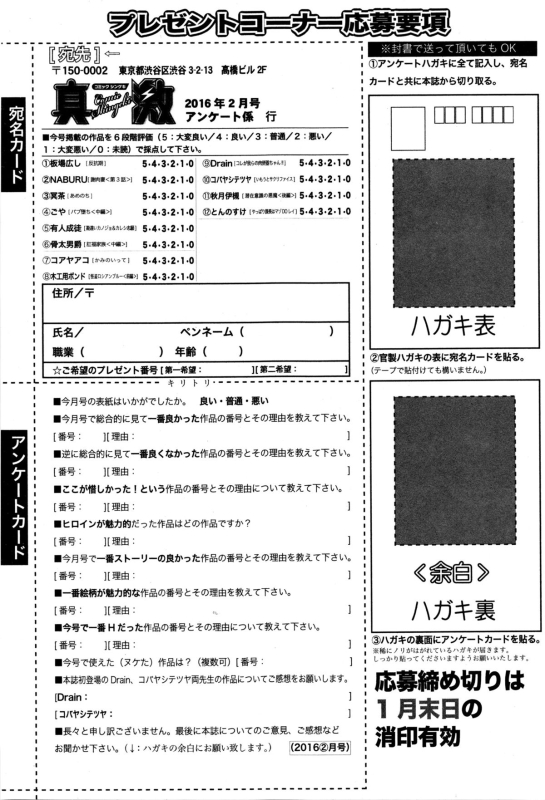 プレゼントコーナー応募要項
[宛先]←
〒150-0002 東京都渋谷区渋谷3-2-13 高橋ビル2F
コミック シンゲキ
真激
Comic Shingeki
2016年2月号
アンケート係 行
宛名カード
■今号掲載の作品を6段階評価(5:大変良い/4:良い/3:普通/2:悪い/
1:大変悪い/0:未読)で採点して下さい。
①板場広し[反抗期] 5・4・3・2・1・0
②NABURU[謝肉妻<第3話>] 5・4・3・2・1・0
③冥茶[あめのち] 5・4・3・2・1・0
④ごや[パブ堕ち<中編>] 5・4・3・2・1・0
⑤有人成徒 5・4・3・2・1・0
⑥骨太男爵[肛福家族<中編>] 5・4・3・2・1・0
⑦コアヤアコ[かみのいって] 5・4・3・2・1・0
⑧木工用ボンド 5・4・3・2・1・0
⑨Drain 5・4・3・2・1・0
⑩コバヤシテツヤ[いもうとサクリファイス] 5・4・3・2・1・0
⑪秋月伊槻[潜在意識の悪魔<後編>] 5・4・3・2・1・0
⑫とんのすけ 5・4・3・2・1・0
住所/〒
氏名/ ペンネーム( )
職業( ) 年齢( )
☆ご希望のプレゼント番号[第一希望: ][第二希望: ]
キリトリ
アンケートカード
■今月号の表紙はいかがでしたか。 良い・普通・悪い
■今月号で総合的に見て一番良かった作品の番号とその理由を教えて下さい。
[番号: ][理由: ]
■逆に総合的に見て一番良くなかった作品の番号とその理由を教えて下さい。
[番号: ][理由: ]
■ここが惜しかった!という作品の番号とその理由について教えて下さい。
[番号: ][理由: ]
■ヒロインが魅力的だった作品はどの作品ですか?
[番号: ][理由: ]
■今月号で一番ストーリーの良かった作品の番号とその理由を教えて下さい。
[番号: ][理由: ]
■一番絵柄が魅力的な作品の番号とその理由を教えて下さい。
[番号: ][理由: ]
■今号で一番Hだった作品の番号とその理由について教えて下さい。
[番号: ][理由: ]
■今号で使えた(ヌケた)作品は?(複数可)[番号: ]
■本誌初登場のDrain、コバヤシテツヤ両先生の作品についてご感想をお願いします。
[Drain: ]
[コバヤシテツヤ: ]
■長々と申し訳ございません。最後に本誌についてのご意見、ご感想など
お聞かせ下さい。(↓:ハガキの余白にお願い致します。) (2016②月号)
※封書で送って頂いてもOK
①アンケートハガキに全て記入し、宛名
カードと共に本誌から切り取る。
ハガキ表
②官製ハガキの表に宛名カードを貼る。
(テープで貼付けても構いません。)
<余白>
ハガキ裏
③ハガキの裏面にアンケートカードを貼る。
※稀にノリがはがれているハガキが届きます。
しっかり貼ってくださいますようお願いいたします。
応募締め切りは
1月末日の
消印有効